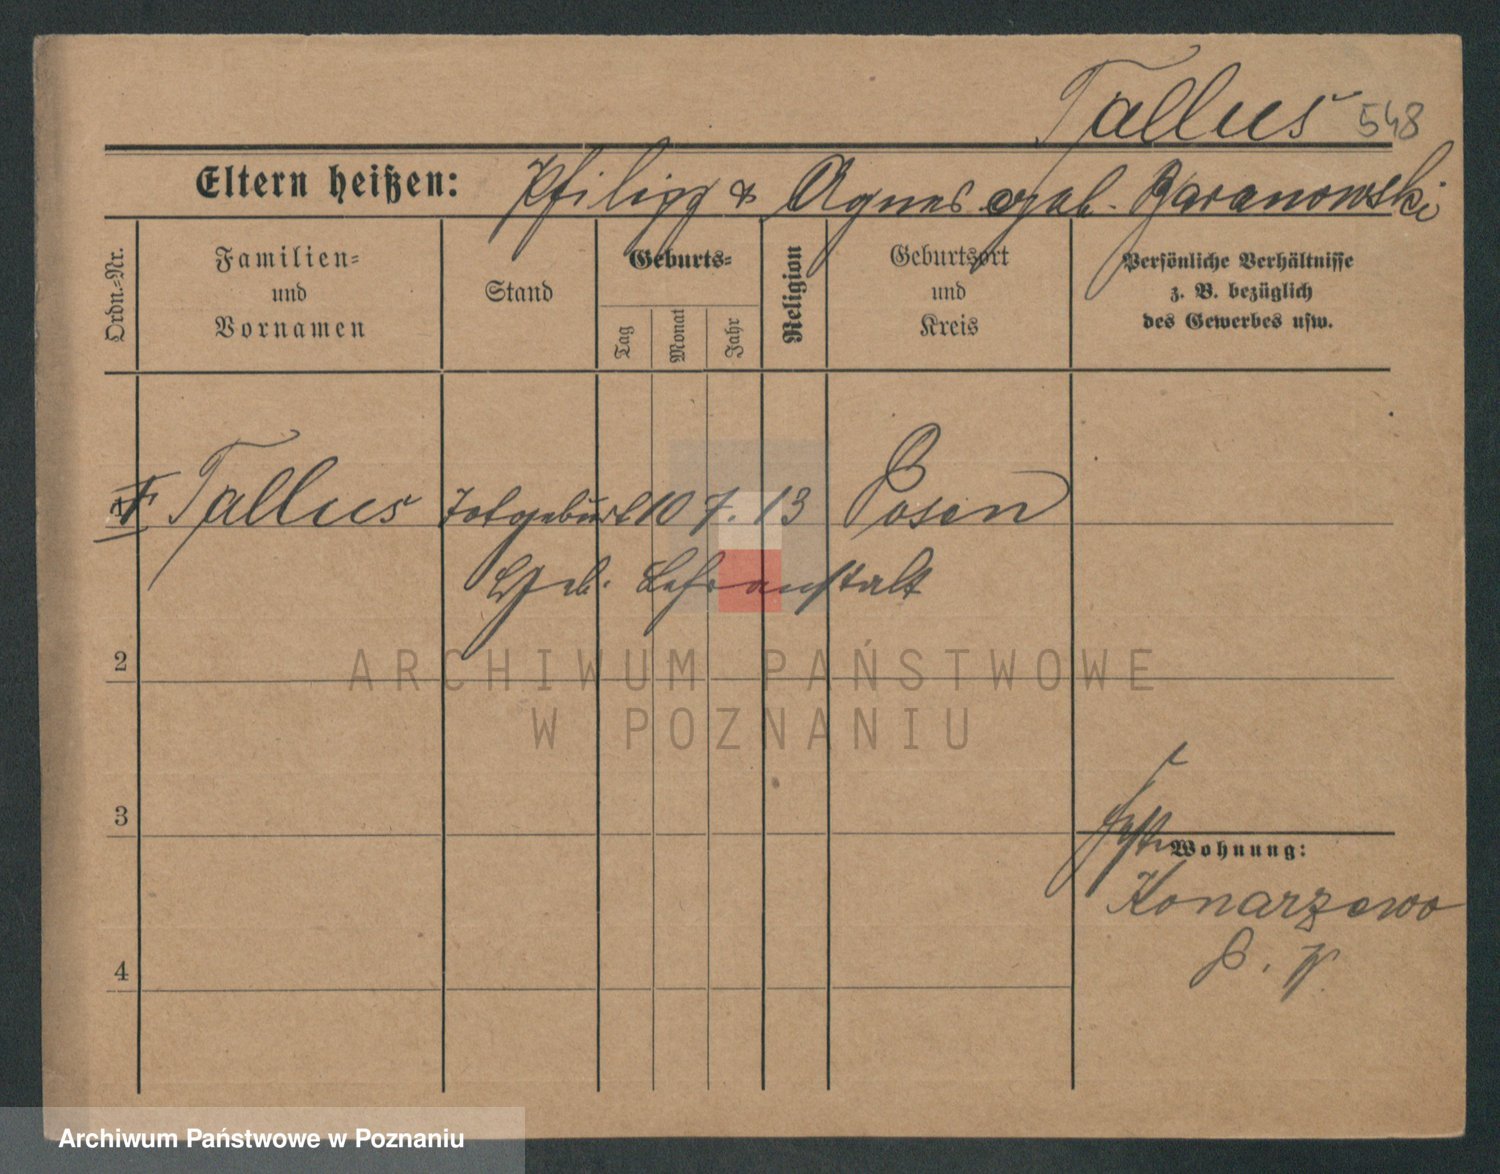 Tallus 548
Eltern heißen: Philipp & Agnes geb. Baranowski
Ordn.-Nr.
Familien- und Vornamen
Stand
Geburts-
Tag
Monat
Jahr
Religion
Geburtsort und Kreis
Persönliche Verhältnisse z. B. bezüglich des Gewerbes usw.
1 Tallus Totgeburt 10 7. 13 Posen
Geb. Lehranstalt
2
ARCHIWUM PAŃSTWOWE
W POZNANIU
3
Wohnung:
Konarzewo
4
Archiwum Państwowe w Poznaniu